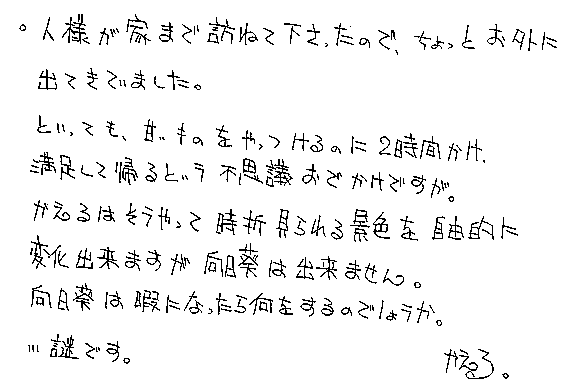 。人様が家まで訪ねて下さったので、ちょっとお外に
出てきていました。
といっても、甘いものをやっつけるのに2時間かけ、
満足して帰るという不思議おでかけですが。
かえるはそうやって時折見られる景色を自由的に
変化出来ますが向日葵は出来ません。
向日葵は暇になったら何をするのでしょうか。
…謎です。
かえる。